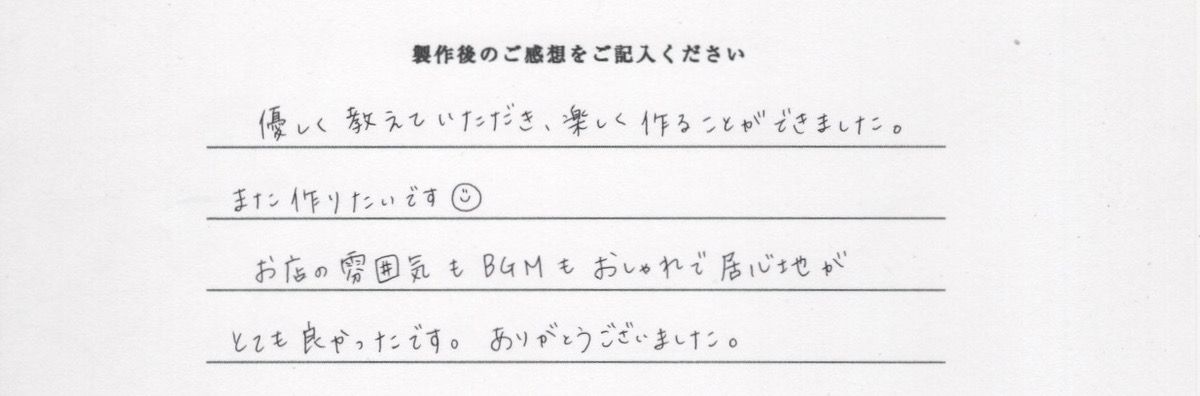 製作後のご感想をご記入ください
優しく教えていただき、楽しく作ることができました。
また作りたいです☺
お店の雰囲気もBGMもおしゃれで居心地が
とても良かったです。ありがとうございました。